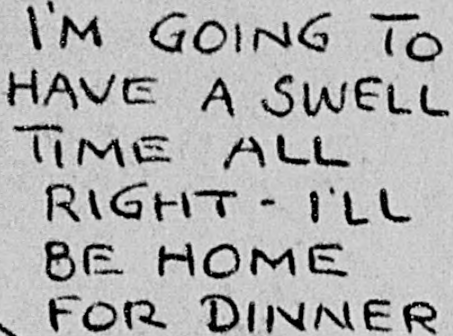 I'M GOING TO
HAVE A SWELL
TIME ALL
RIGHT - I'LL
BE HOME
FOR DINNER